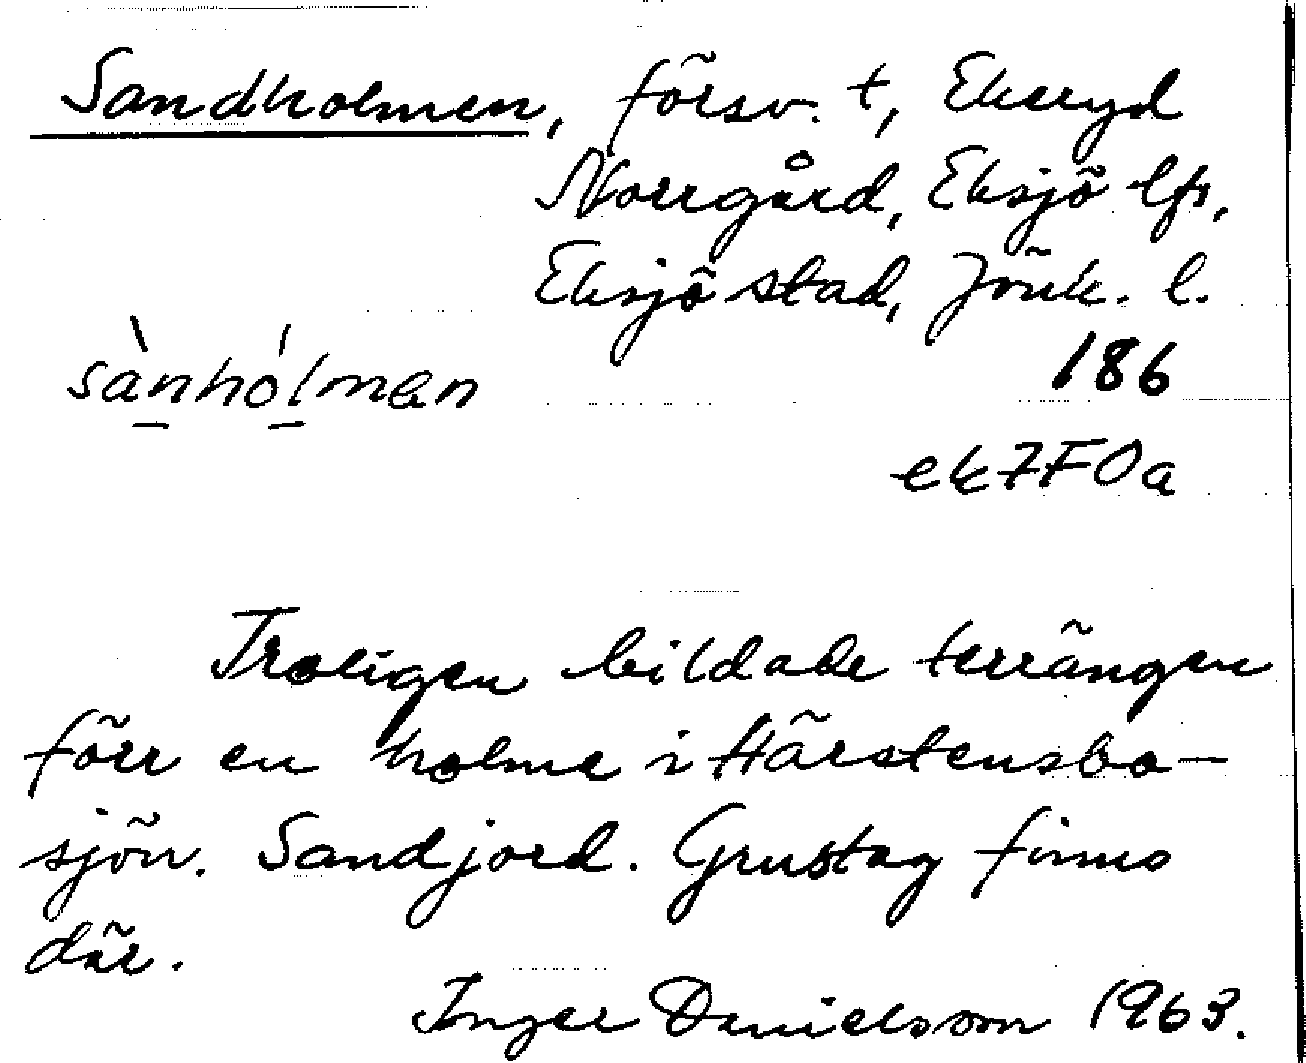 Sandholmen, försv. t, Ekeryd
Norrgård, Eksjö lfs,
Eksjö stad, Jönk. l.
sànhólmen
186
ek7F0a
Troligen bildade terrängen
förr en holme i Härstensbo-
sjön. Sandjord. Grustag finns
där.
Inger Danielsson 1963.